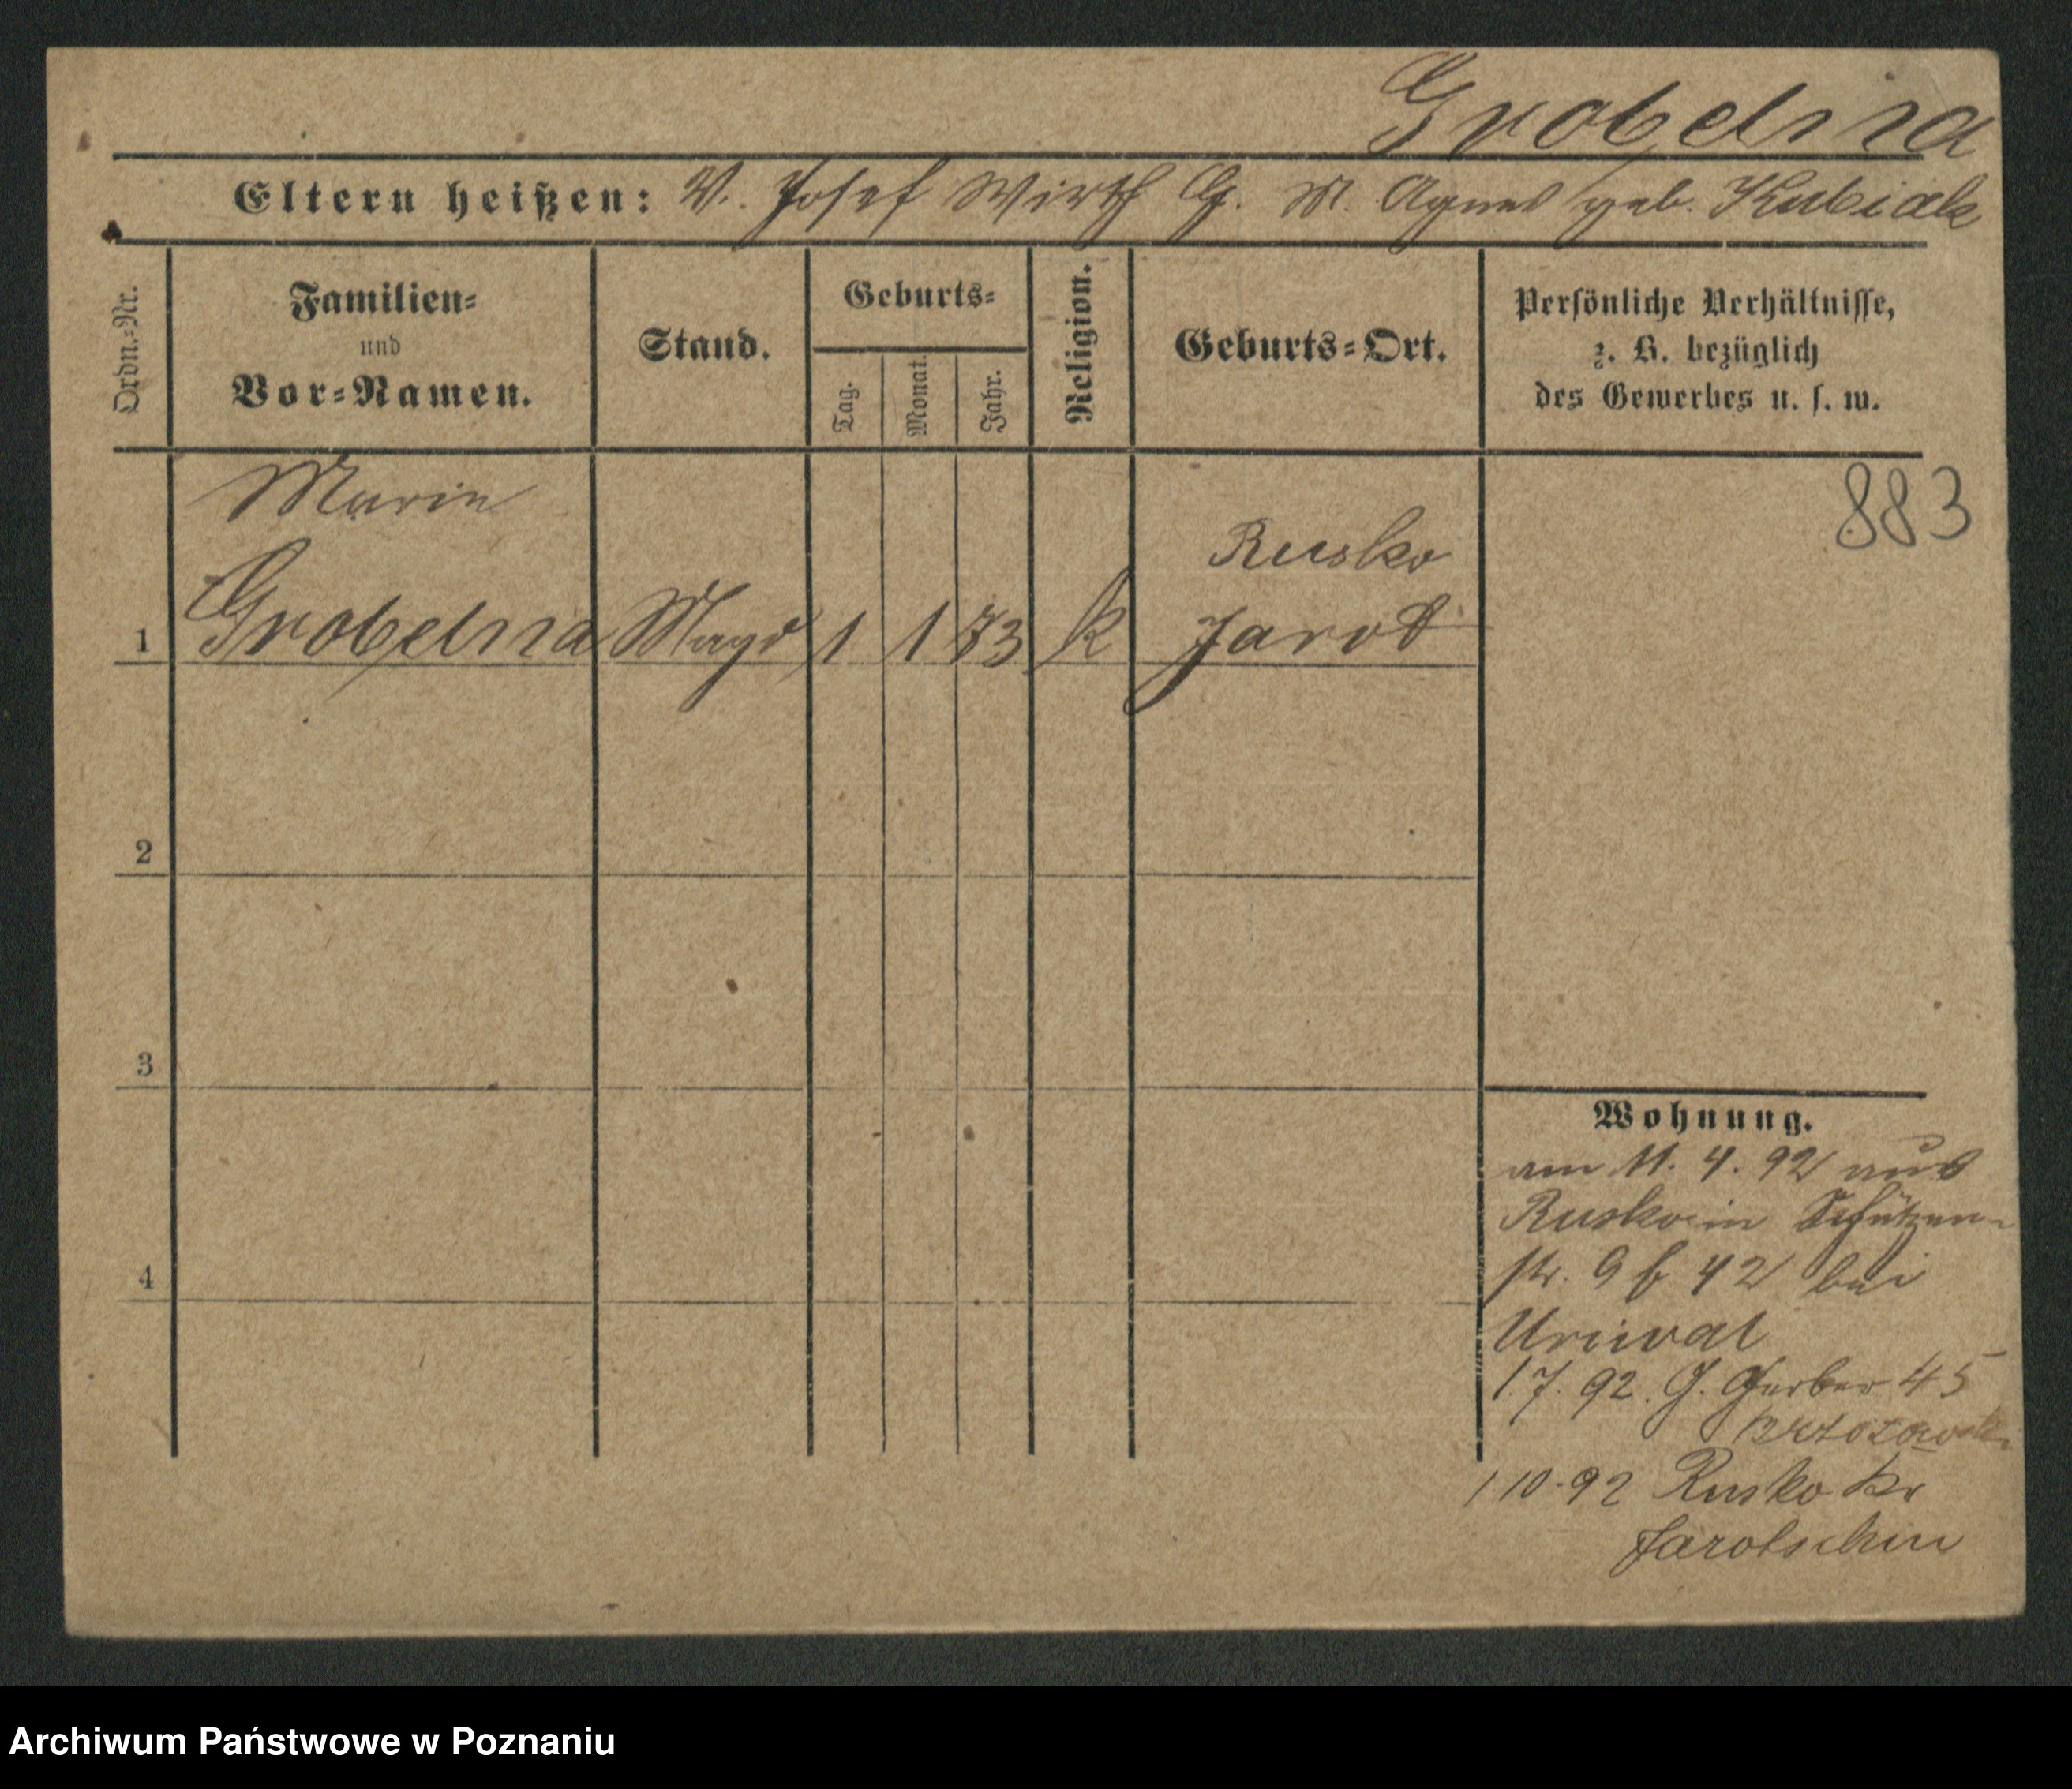 Grobelna
Eltern heißen: V. Josef Wirth G. M. Agnes geb. Kubiak
Ordn.-Nr.
Familien-
und
Vor-Namen.
Stand.
Geburts-
Tag.
Monat.
Jahr.
Religion.
Geburts-Ort.
Persönliche Verhältnisse,
z. B. bezüglich
des Gewerbes u. s. w.
883
Marie
Rusko
1 Grobelna Magd 1 1 73 k Jarot
2
3
4
Wohnung.
am 11. 4. 92 aus
Rusko in Schützen-
str. 9 b 42 bei
17. 92. G. Gerber 45
1 10. 92 Rusko Kr
Jarotschin
Archiwum Państwowe w Poznaniu